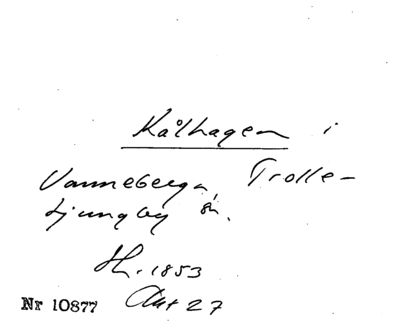 Kålhagen i
Vanneberga, Trolle-
Ljungby sn.
Sk. 1853
Akt 27
Nr 10877